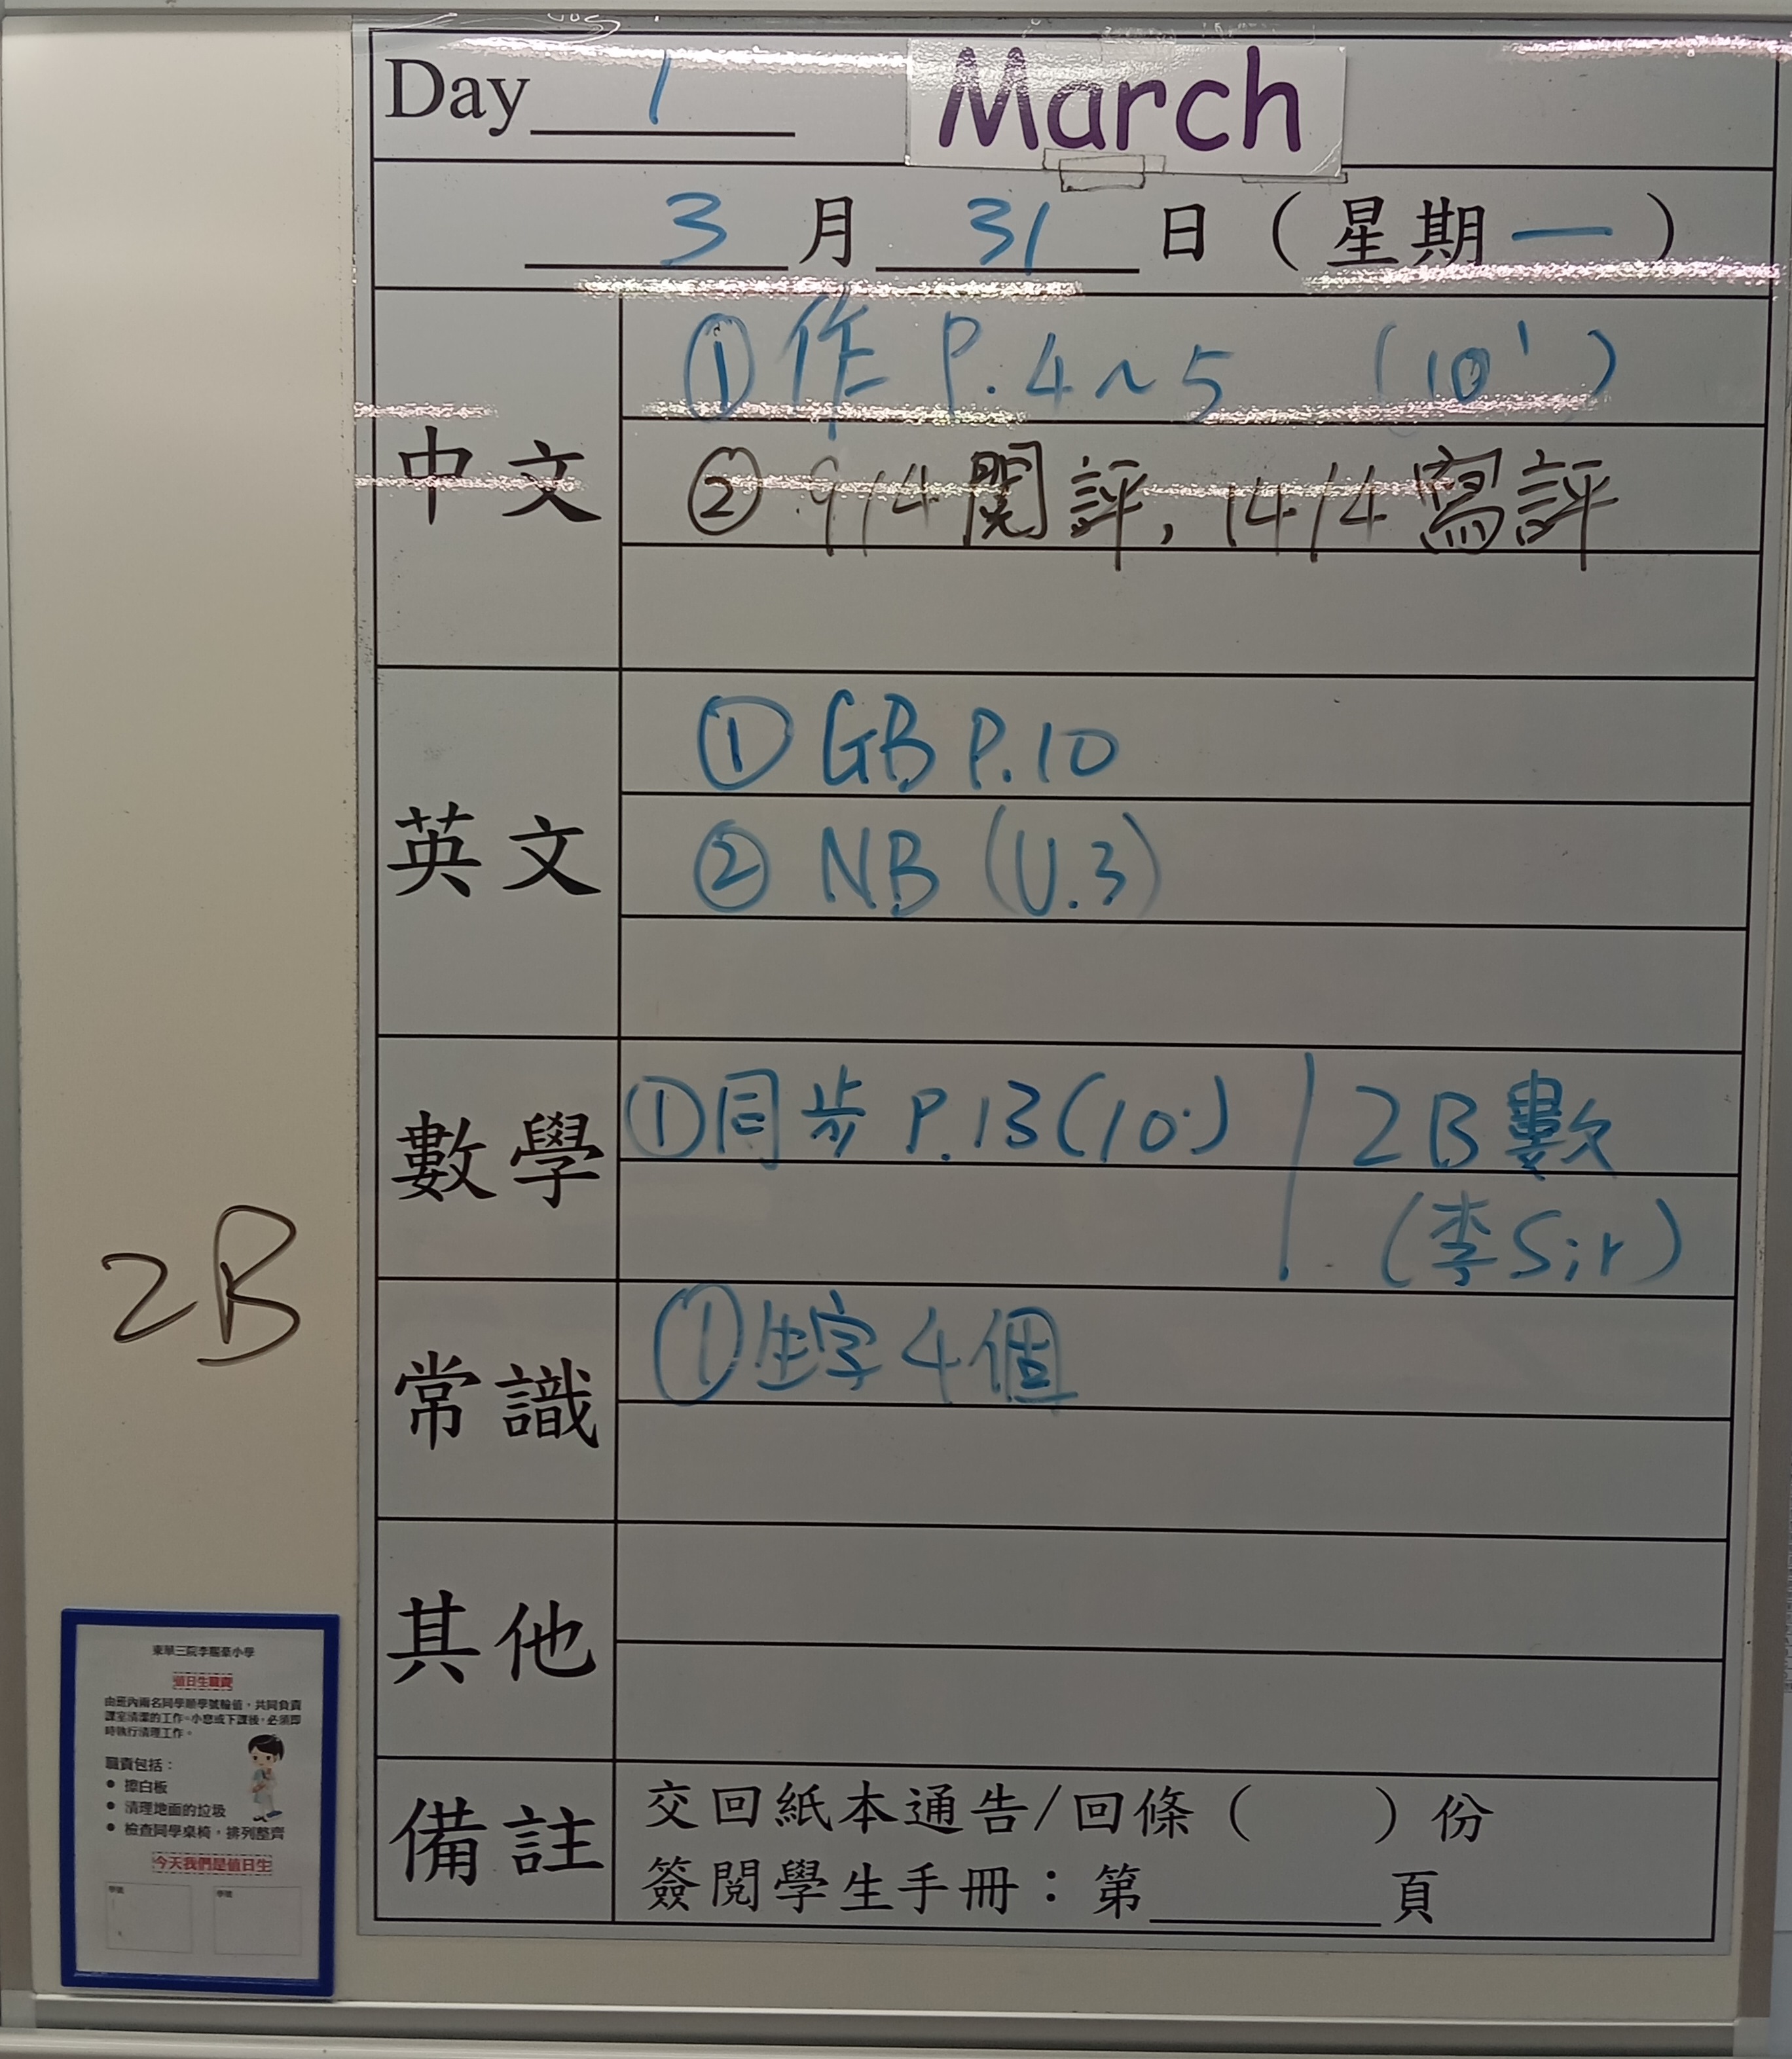 Day 1 March
3 月 31 日 (星期一)
中文
① 作 P.4~5 (10')
② 9/4 閱評, 14/4 寫評
英文
① GB P.10
② NB (U.3)
數學
① 同步 P.13 (10') 2B 數
(李Sir)
常識
① 生字4個
其他
備註
交回紙本通告/回條 ( ) 份
簽閱學生手冊：第 頁
2B
東華三院李賜豪小學
值日生職責
由班內兩名同學順學號輪值，共同負責
課室清潔的工作。小息或下課後，必須即
時執行清理工作。
職責包括：
● 擦白板
● 清理地面的垃圾
● 檢查同學桌椅，排列整齊
今天我們是值日生
學號 學號